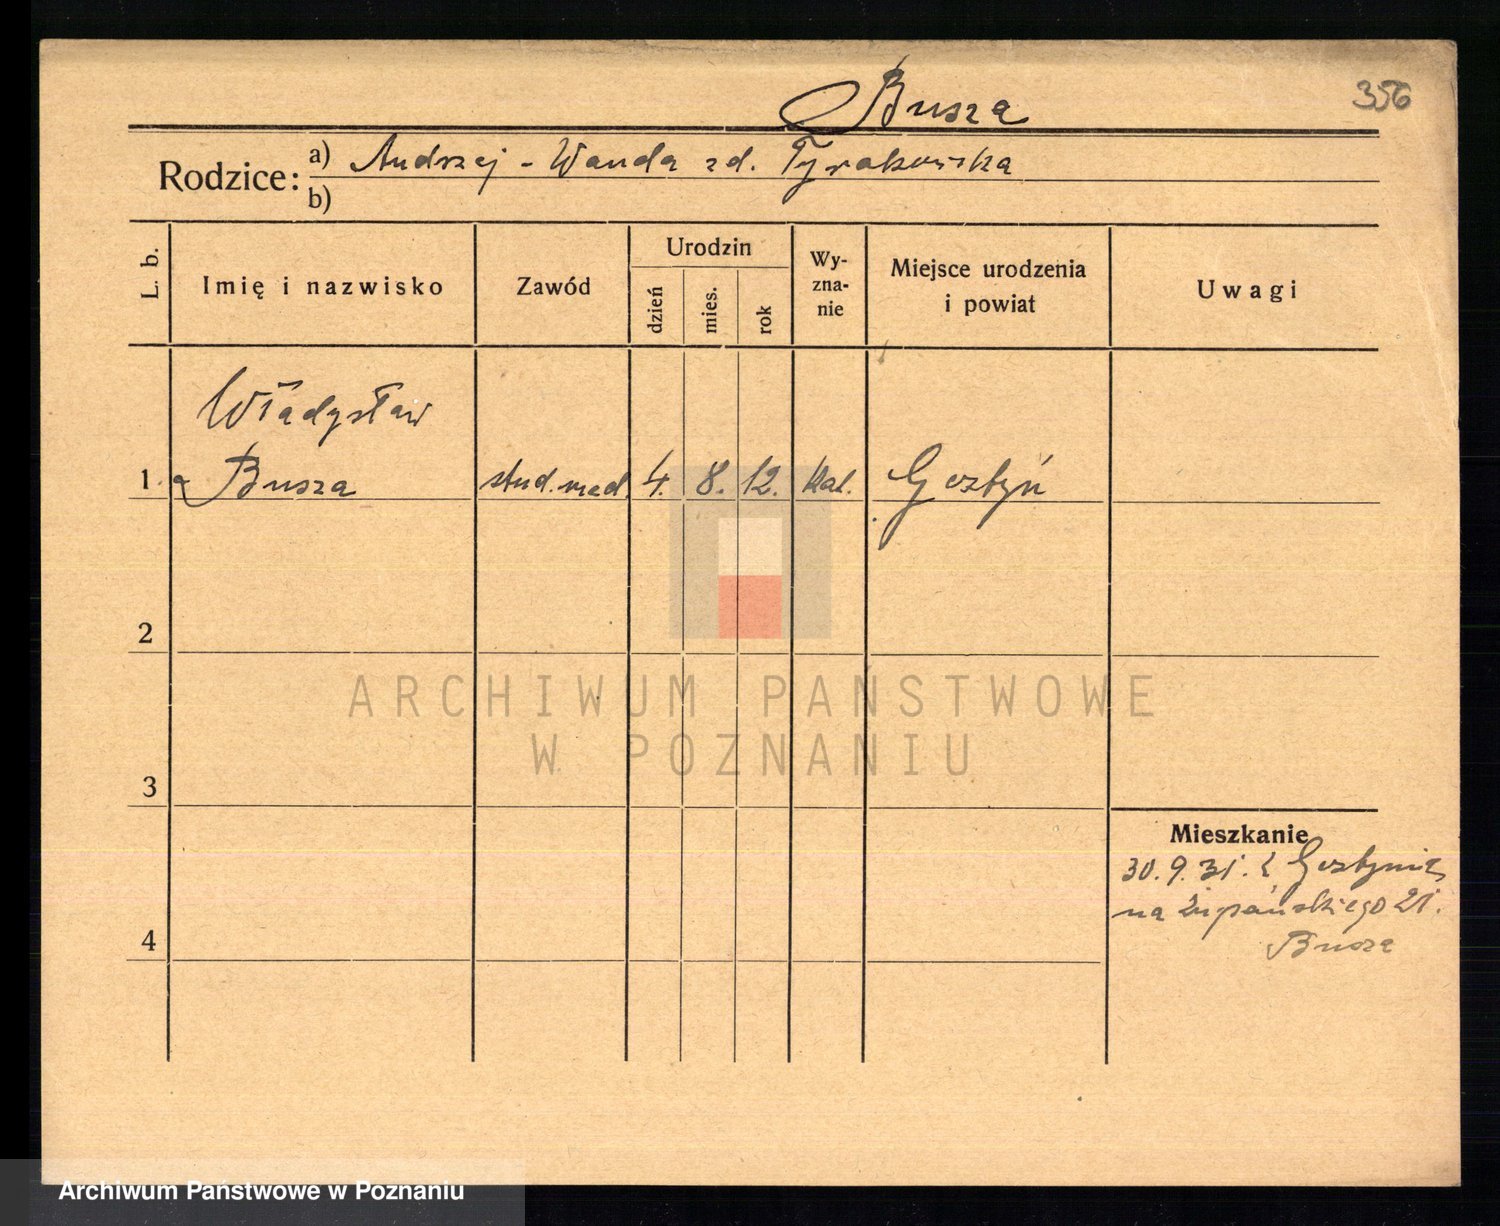 Busza
356
Rodzice: a) Andrzej - Wanda zd. Tyrakowska
b)
L. b.
Imię i nazwisko
Zawód
Urodzin
dzień
mies.
rok
Wy-
zna-
nie
Miejsce urodzenia
i powiat
Uwagi
Władysław
1. Busza stud. med. 4. 8. 12. kat. Gostyń
2
3
4
Mieszkanie
30. 9. 31. z Gostynia
na Żupańskiego 21.
Busza
ARCHIWUM PAŃSTWOWE
W POZNANIU
Archiwum Państwowe w Poznaniu